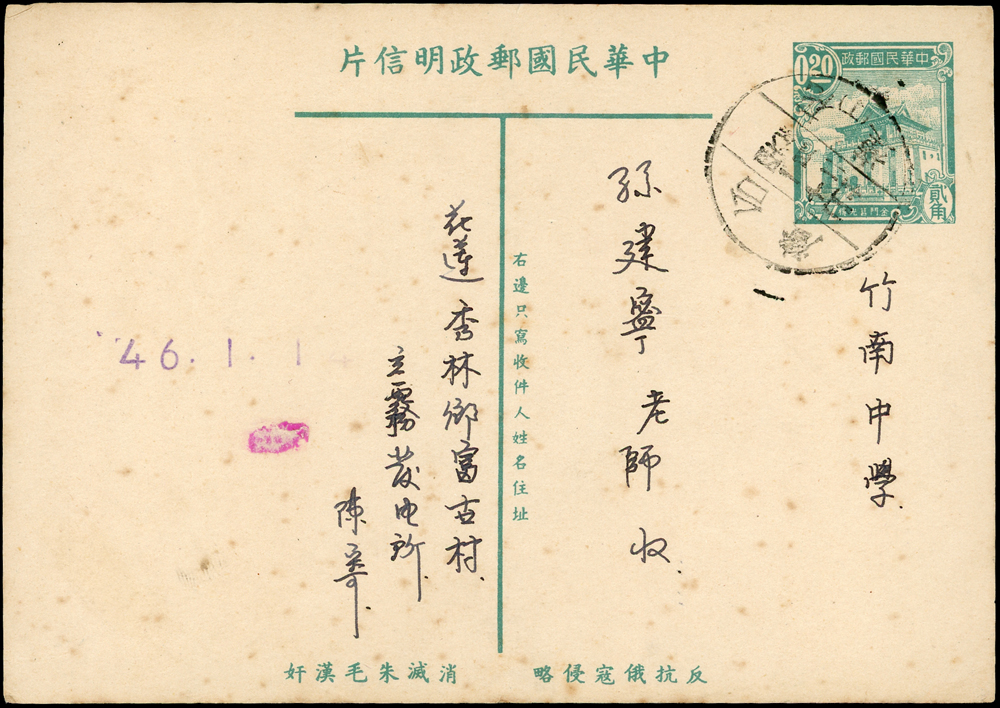 中華民國郵政明信片
中華民國郵政
0.20
貳角
竹南中學
孫建寧老師收
右邊只寫收件人姓名住址
花蓮秀林鄉富古村
立霧发电所
陳奇
46.1.1
反抗俄寇侵略
消滅朱毛漢奸